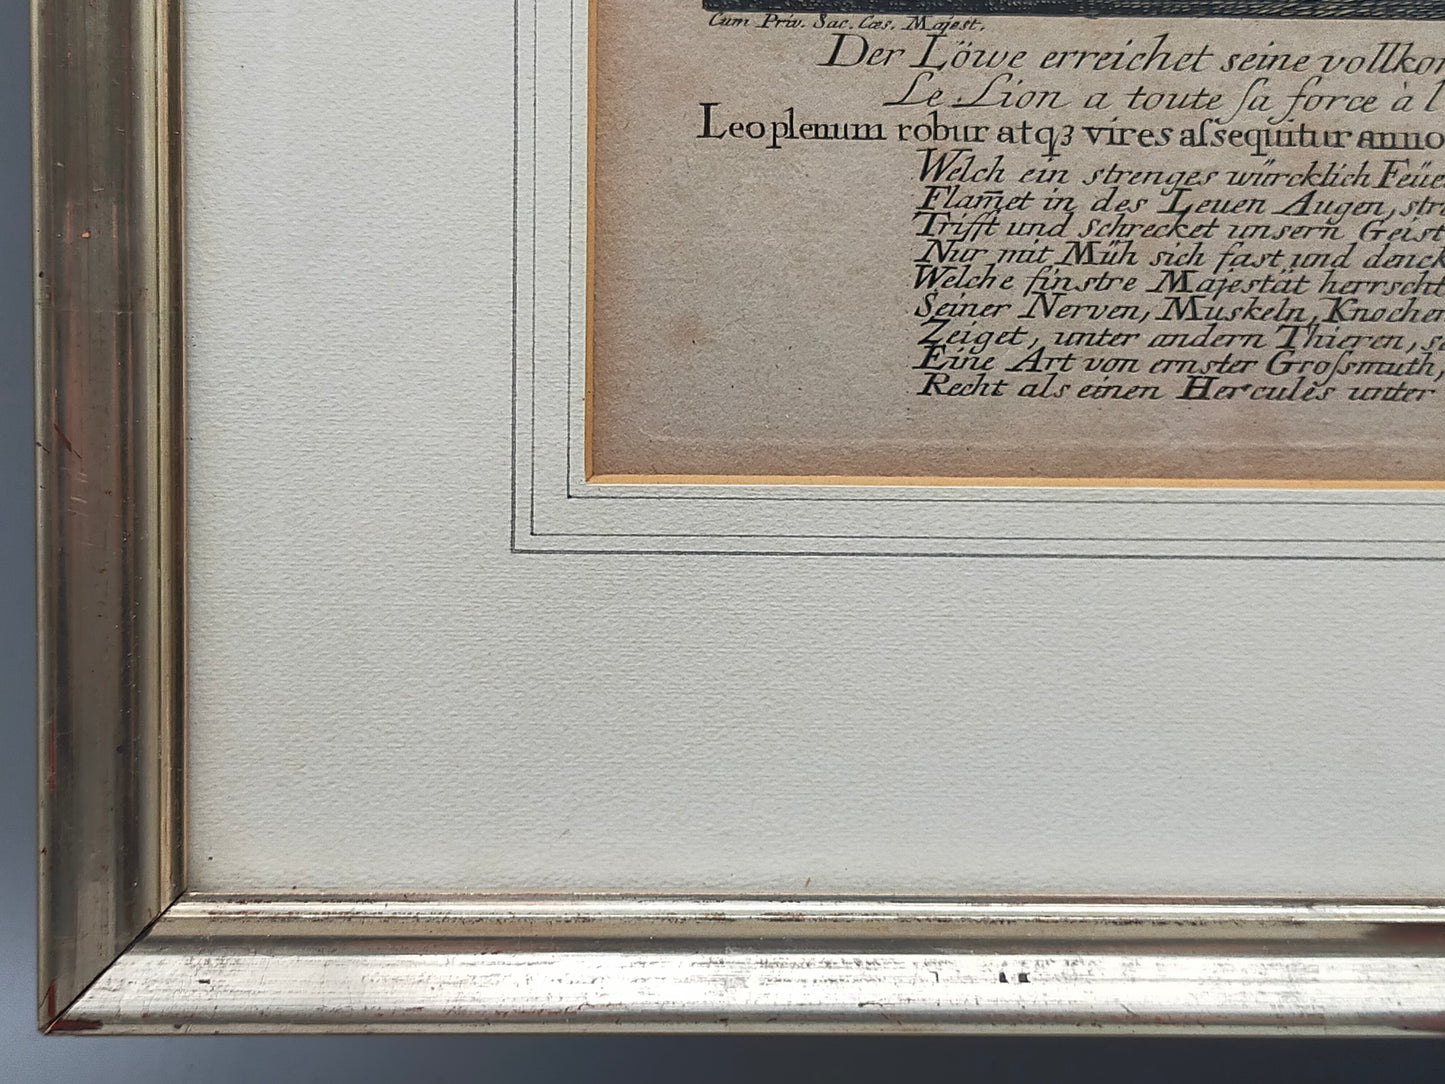 Cum Priv. Sac. Cæs. Majest.
Der Löwe erreichet seine vollkom
Le Lion a toute ſa force à l
Leo plenum robur atqꝫ vires aſsequitur anno
Welch ein strenges würcklich Feüe
Flam̅et in des Leuen Augen, str
Trifft und schrecket unsern̅ Geist
Nur mit Müh sich faſt und denck
Welche finstre Majestät herrscht
Seiner Nerven, Muskeln, Knochen
Zeiget, unter andern Thieren, se
Eine Art von ernster Groſsmuth,
Recht als einen Hercules unter